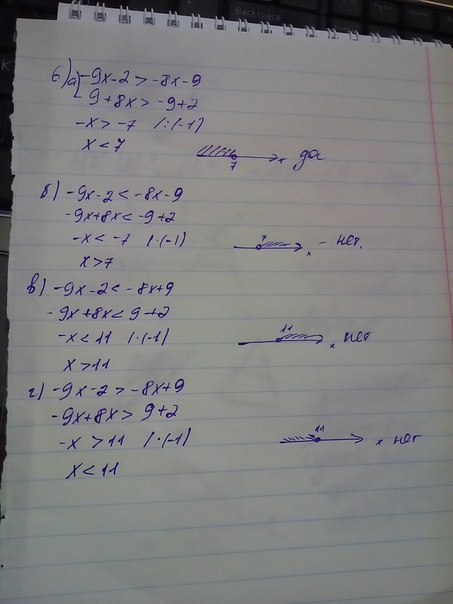 6) а) -9x-2 > -8x-9
-9+8x > -9+2
-x > -7 |:(-1)
x < 7
7 x да
б) -9x-2 < -8x-9
-9x+8x < -9+2
-x < -7 |·(-1)
7 x - нет.
x > 7
в) -9x-2 < -8x+9
-9x+8x < 9+2
-x < 11 |·(-1)
11 x нет
x > 11
г) -9x-2 > -8x+9
-9x+8x > 9+2
-x > 11 |·(-1)
11 x нет
x < 11
Backspace